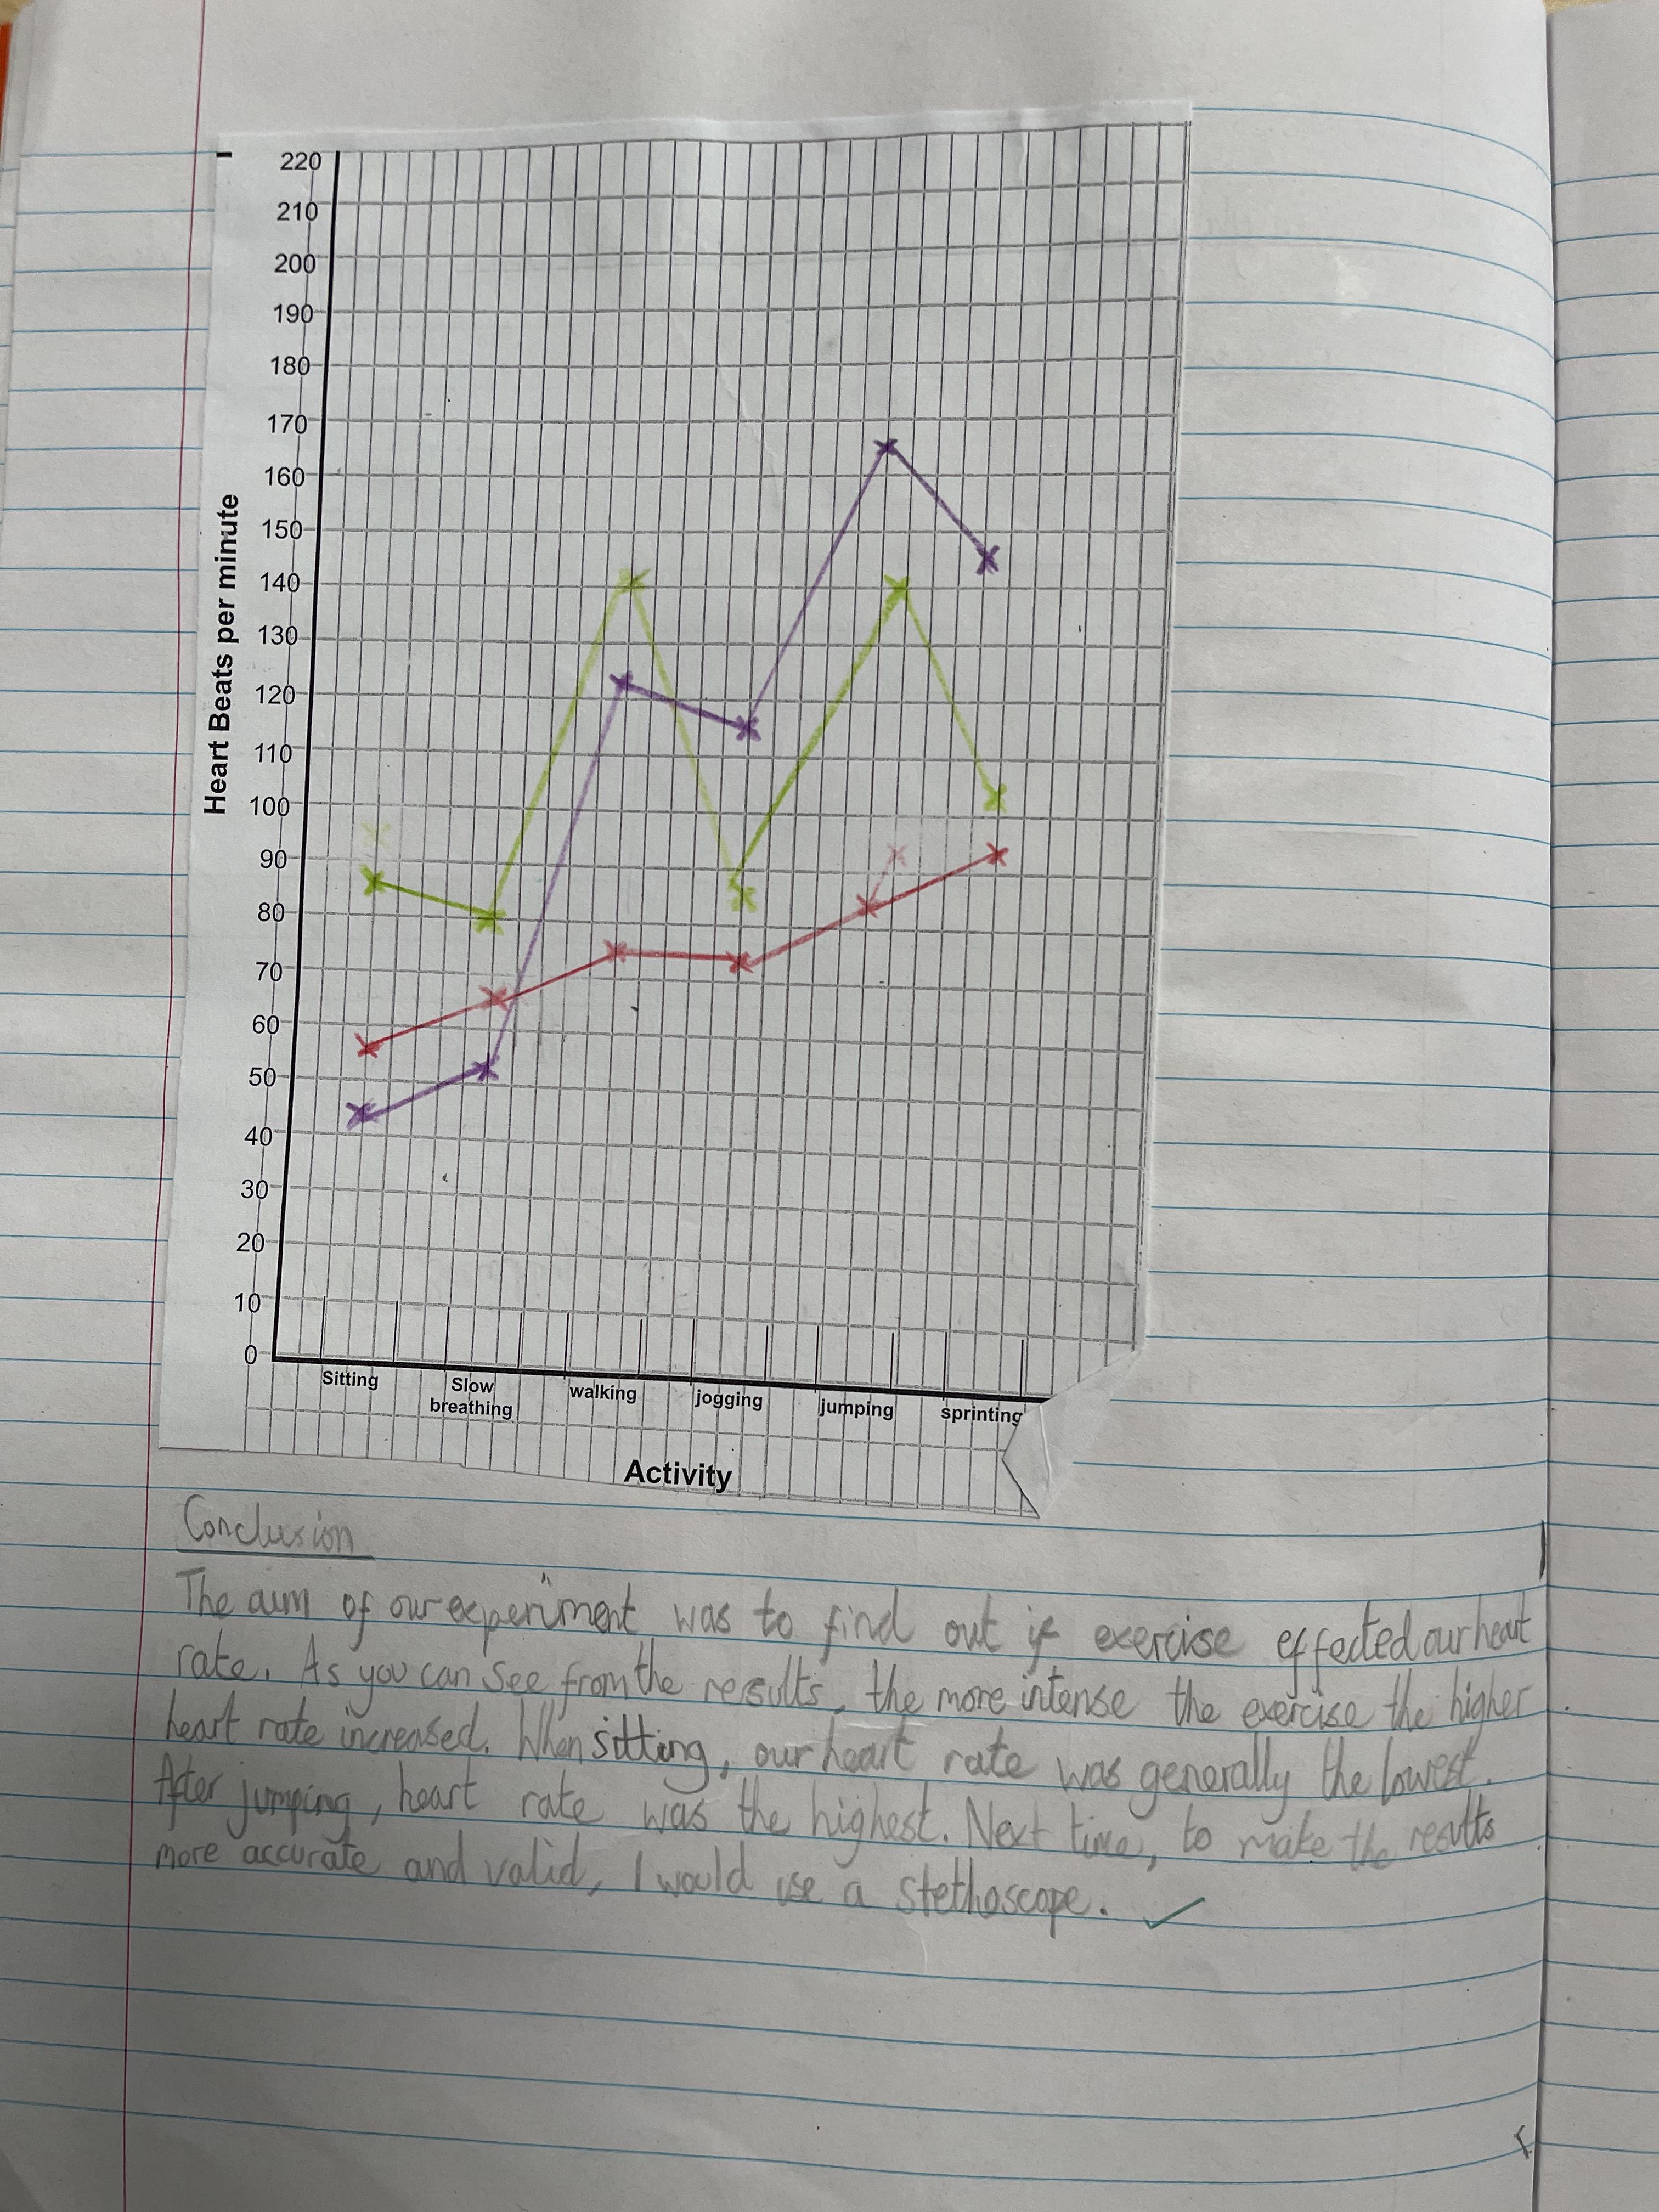 220
210
200
190
180
170
160
150
140
130
120
110
100
90
80
70
60
50
40
30
20
10
0
Heart Beats per minute
Sitting
Slow
breathing
walking
jogging
jumping
sprinting
Activity
Conclusion
The aim of our experiment was to find out if exercise effected our heart
rate. As you can see from the results, the more intense the exercise the higher
heart rate increased. When sitting, our heart rate was generally the lowest.
After jumping, heart rate was the highest. Next time, to make the results
more accurate and valid, I would use a stethoscope.